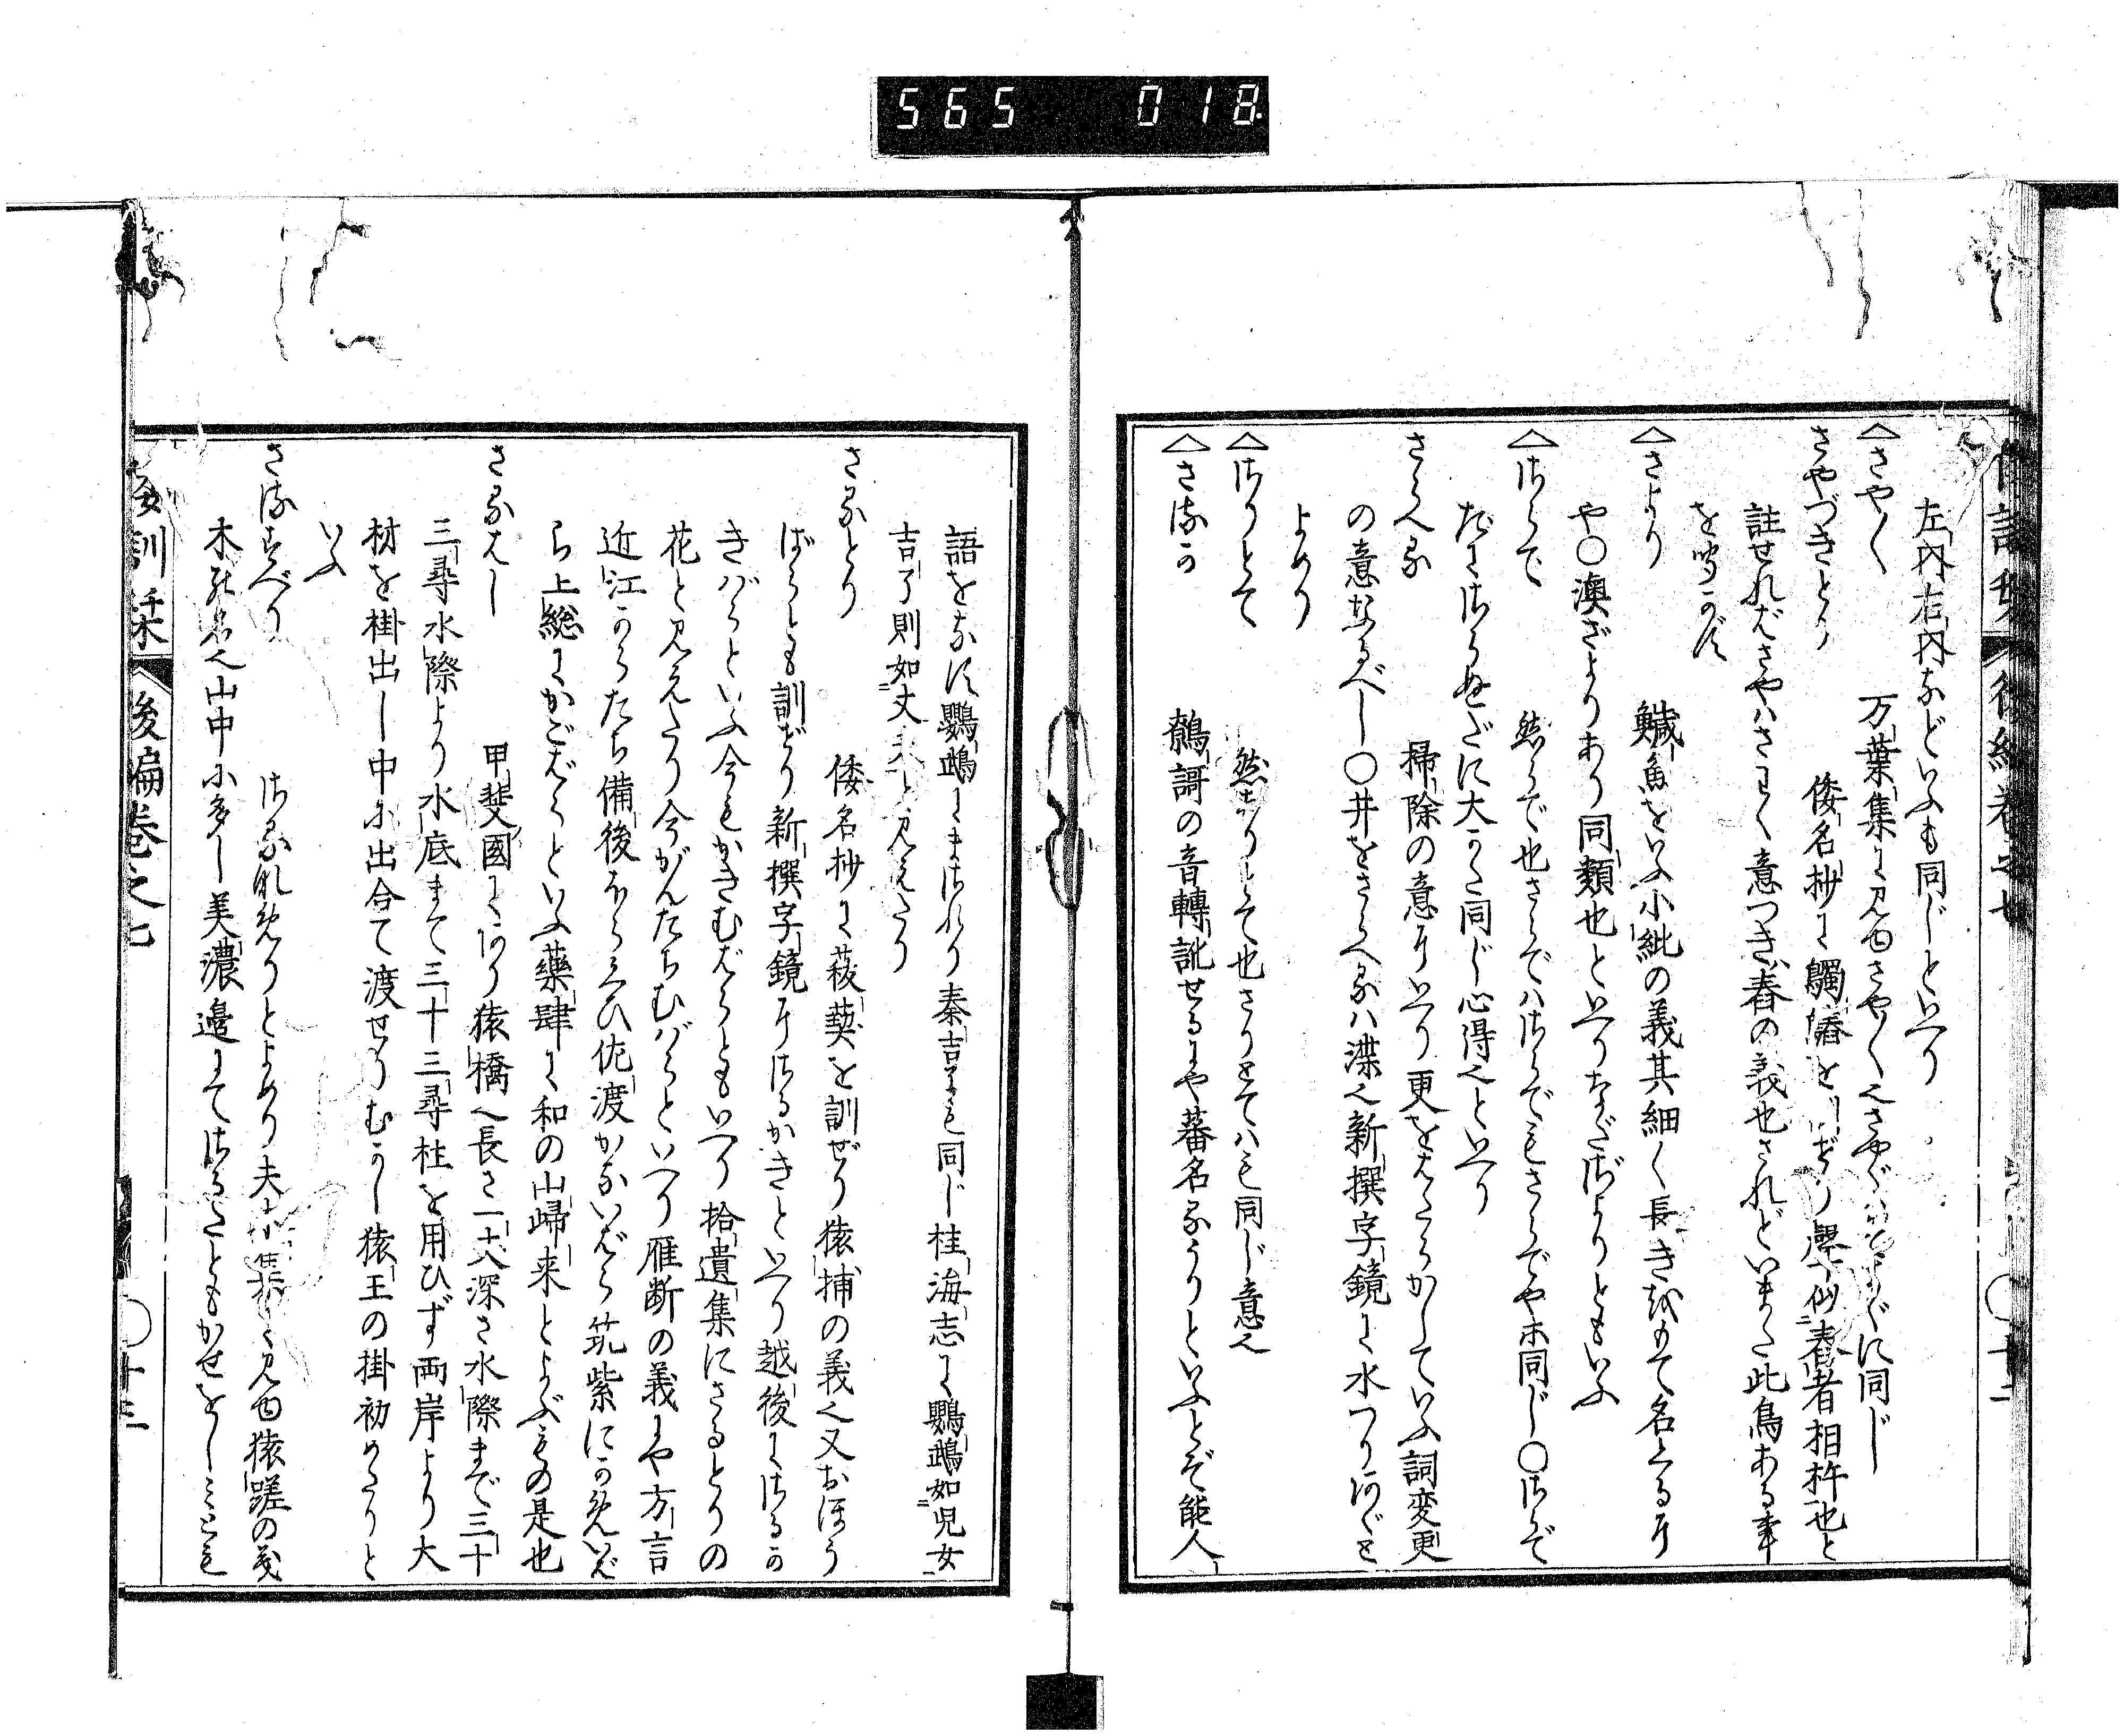 565 018
左内右内などいふも同じといへり
△さや〱 万葉集に見ゆさや〱也さやぐ に同じ
さやづきどり 倭名抄に 相杵也と
註せればさやハさわく意つきハ舂の義也されどいまた此鳥ある事
を聞かず
△さより 鱵魚をいふ小紕の義其細く長きをもて名くるにや
や○澳ざよりあり同類也といへりなだざよりともいふ
△さらで 然らで也さらでハさらでもさらでや亦同じ○さらで
だにさらぬだに大かた同じ心得へといへり
さらへる 掃除の意にいへり更をはたらかしていふ詞変更
の意なるべし○井をさらへるハ渫也新撰字鏡に水つりあぐと
よめり
△さりとて 然ありとて也さりとてハも同じ意也
△さるか 鶺謌の音轉訛せるにや蕃名なりといふとぞ能人
語をなす鸚鵡にまされり秦吉了も同じ桂海志に鸚鵡如児女
吉了則如丈夫と見えたり
さるとり 倭名抄に菝葜を訓ぜり猿捕の義也又おほう
ばらとも訓ぜり新撰字鏡にさるかきといへり越後にさるか
きバらといふ今もかきむばらともいへり拾遺集にさるとりの
花と見えたり今がんたちむばらといへり雁断の義にや方言
近江からたち備後ほらくひ佐渡かないばら筑紫にかめいば
ら上総にかごばらといふ藥肆に和の山帰来とよぶもの是也
さるはし 甲斐國にあり猿橋也長さ一十八深さ水際まで三十
三尋水際より水底まて三十三尋柱を用ひず両岸より大
材を掛出し中に出合て渡せりむかし猿王の掛初めたりと
いふ
さるすべり さるなめりとよめり夫木集に見ゆ猿蹉の義
木の名也山中に多し美濃邊にてさるたともかせをしミとも
倭訓栞 後編巻之七 ○十三